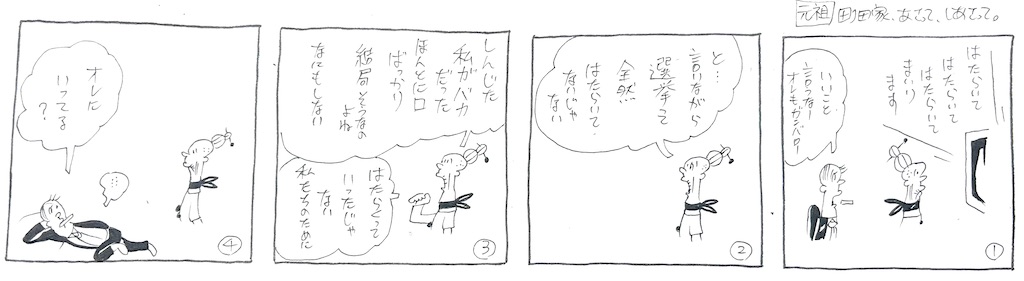 元祖 町田家、あさって、しあさって。
はたらいて
はたらいて
はたらいて
まいり
ます
いいこと
言うなー
オレもガンバロー
①
と…
言いながら
選挙して
全然
はたらいて
ないじゃ
ない
②
しんじた
私がバカ
だった
ほんとに口
ばっかり
結局そうなの
よね
なにもしない
はたらくって
いったじゃ
ない
私たちのために
③
オレに
いってる
?
④